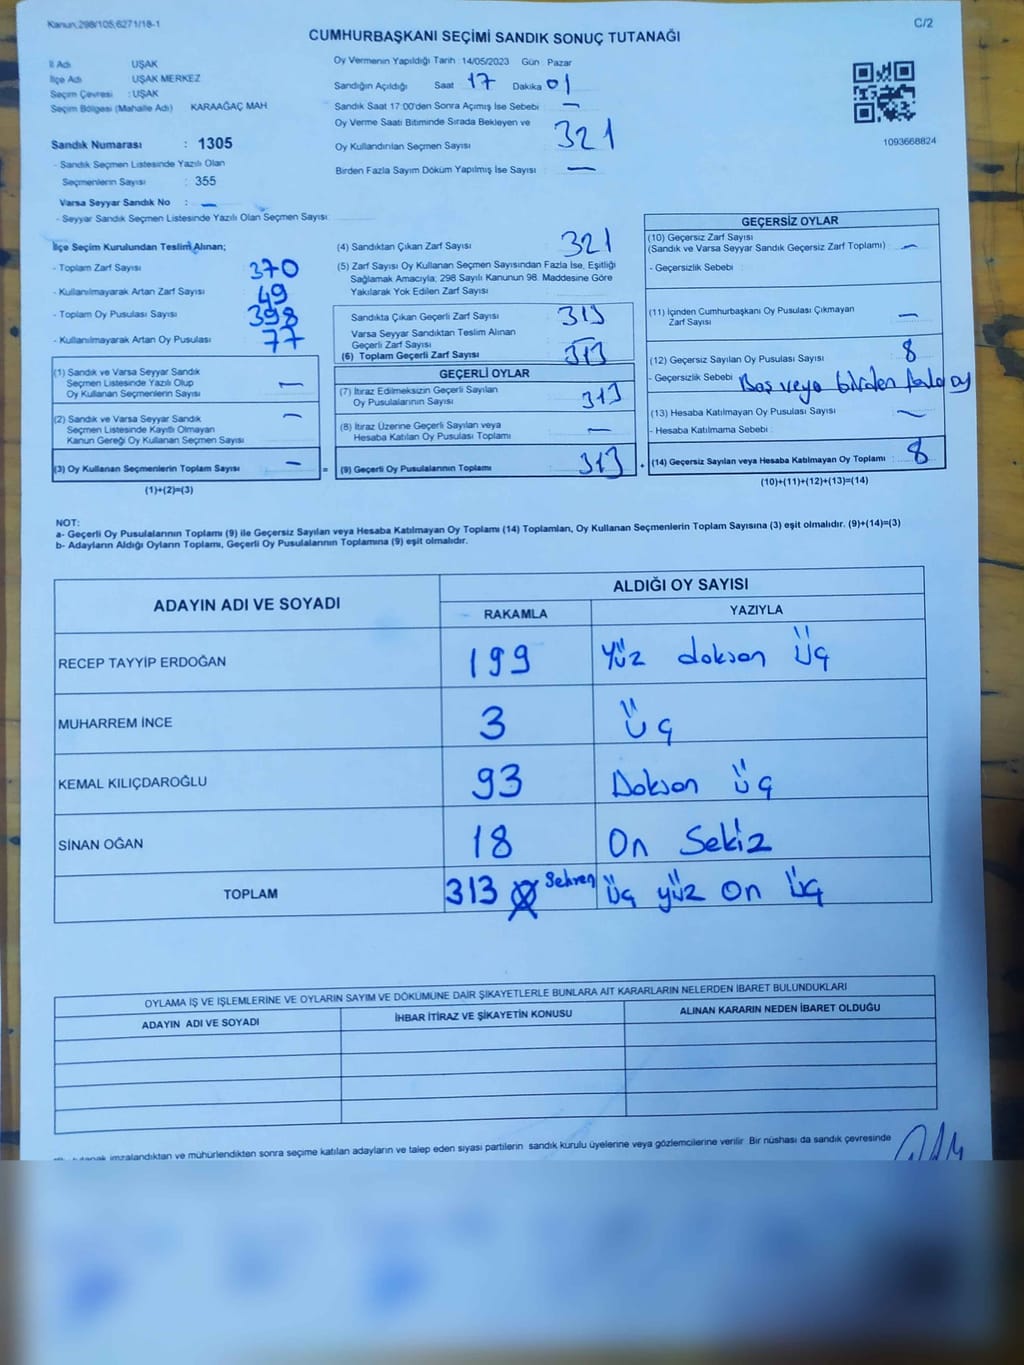 Kanun:298/105;6271/18-1
C/2
CUMHURBAŞKANI SEÇİMİ SANDIK SONUÇ TUTANAĞI
İl Adı : UŞAK
İlçe Adı : UŞAK MERKEZ
Seçim Çevresi : UŞAK
Seçim Bölgesi (Mahalle Adı) KARAAĞAÇ MAH
Sandık Numarası : 1305
- Sandık Seçmen Listesinde Yazılı Olan
Seçmenlerin Sayısı : 355
Varsa Seyyar Sandık No : —
- Seyyar Sandık Seçmen Listesinde Yazılı Olan Seçmen Sayısı
Oy Vermenin Yapıldığı Tarih : 14/05/2023 Gün Pazar
Sandığın Açıldığı Saat 17 Dakika 01
Sandık Saat 17:00'den Sonra Açımış İse Sebebi : —
Oy Verme Saati Bitiminde Sırada Bekleyen ve
Oy Kullandırılan Seçmen Sayısı 321
Birden Fazla Sayım Döküm Yapılmış İse Sayısı —
1093668824
İlçe Seçim Kurulundan Teslim Alınan;
- Toplam Zarf Sayısı : 370
- Kullanılmayarak Artan Zarf Sayısı : 49
- Toplam Oy Pusulası Sayısı : 398
- Kullanılmayarak Artan Oy Pusulası : 77
(1) Sandık ve Varsa Seyyar Sandık
Seçmen Listesinde Yazılı Olup
Oy Kullanan Seçmenlerin Sayısı : —
(2) Sandık ve Varsa Seyyar Sandık
Seçmen Listesinde Kayıtlı Olmayan
Kanun Gereği Oy Kullanan Seçmen Sayısı : —
(3) Oy Kullanan Seçmenlerin Toplam Sayısı : —
(1)+(2)=(3)
(4) Sandıktan Çıkan Zarf Sayısı : 321
(5) Zarf Sayısı Oy Kullanan Seçmen Sayısından Fazla İse, Eşitliği
Sağlamak Amacıyla; 298 Sayılı Kanunun 98. Maddesine Göre
Yakılarak Yok Edilen Zarf Sayısı
Sandıkta Çıkan Geçerli Zarf Sayısı : 313
Varsa Seyyar Sandıktan Teslim Alınan
Geçerli Zarf Sayısı : —
(6) Toplam Geçerli Zarf Sayısı : 313
GEÇERLİ OYLAR
(7) İtiraz Edilmeksizin Geçerli Sayılan
Oy Pusulalarının Sayısı : 313
(8) İtiraz Üzerine Geçerli Sayılan veya
Hesaba Katılan Oy Pusulası Toplamı : —
= (9) Geçerli Oy Pusulalarının Toplamı : 313 +
GEÇERSİZ OYLAR
(10) Geçersiz Zarf Sayısı
(Sandık ve Varsa Seyyar Sandık Geçersiz Zarf Toplamı) : —
- Geçersizlik Sebebi :
(11) İçinden Cumhurbaşkanı Oy Pusulası Çıkmayan
Zarf Sayısı : —
(12) Geçersiz Sayılan Oy Pusulası Sayısı : 8
- Geçersizlik Sebebi : Boş veya birden fazla oy
(13) Hesaba Katılmayan Oy Pusulası Sayısı : —
- Hesaba Katılmama Sebebi :
(14) Geçersiz Sayılan veya Hesaba Katılmayan Oy Toplamı : 8
(10)+(11)+(12)+(13)=(14)
NOT:
a- Geçerli Oy Pusulalarının Toplamı (9) ile Geçersiz Sayılan veya Hesaba Katılmayan Oy Toplamı (14) Toplamları, Oy Kullanan Seçmenlerin Toplam Sayısına (3) eşit olmalıdır. (9)+(14)=(3)
b- Adayların Aldığı Oyların Toplamı, Geçerli Oy Pusulalarının Toplamına (9) eşit olmalıdır.
ADAYIN ADI VE SOYADI
ALDIĞI OY SAYISI
RAKAMLA YAZIYLA
RECEP TAYYİP ERDOĞAN 199 Yüz dokson üç
MUHARREM İNCE 3 Üç
KEMAL KILIÇDAROĞLU 93 Dokson üç
SİNAN OĞAN 18 On Sekiz
TOPLAM 313 Sehven Üç yüz On üç
OYLAMA İŞ VE İŞLEMLERİNE VE OYLARIN SAYIM VE DÖKÜMÜNE DAİR ŞİKAYETLERLE BUNLARA AİT KARARLARIN NELERDEN İBARET BULUNDUKLARI
ADAYIN ADI VE SOYADI
İHBAR İTİRAZ VE ŞİKAYETİN KONUSU
ALINAN KARARIN NEDEN İBARET OLDUĞU
tutanak imzalandıktan ve mühürlendikten sonra seçime katılan adayların ve talep eden siyasi partilerin sandık kurulu üyelerine veya gözlemcilerine verilir Bir nüshası da sandık çevresinde